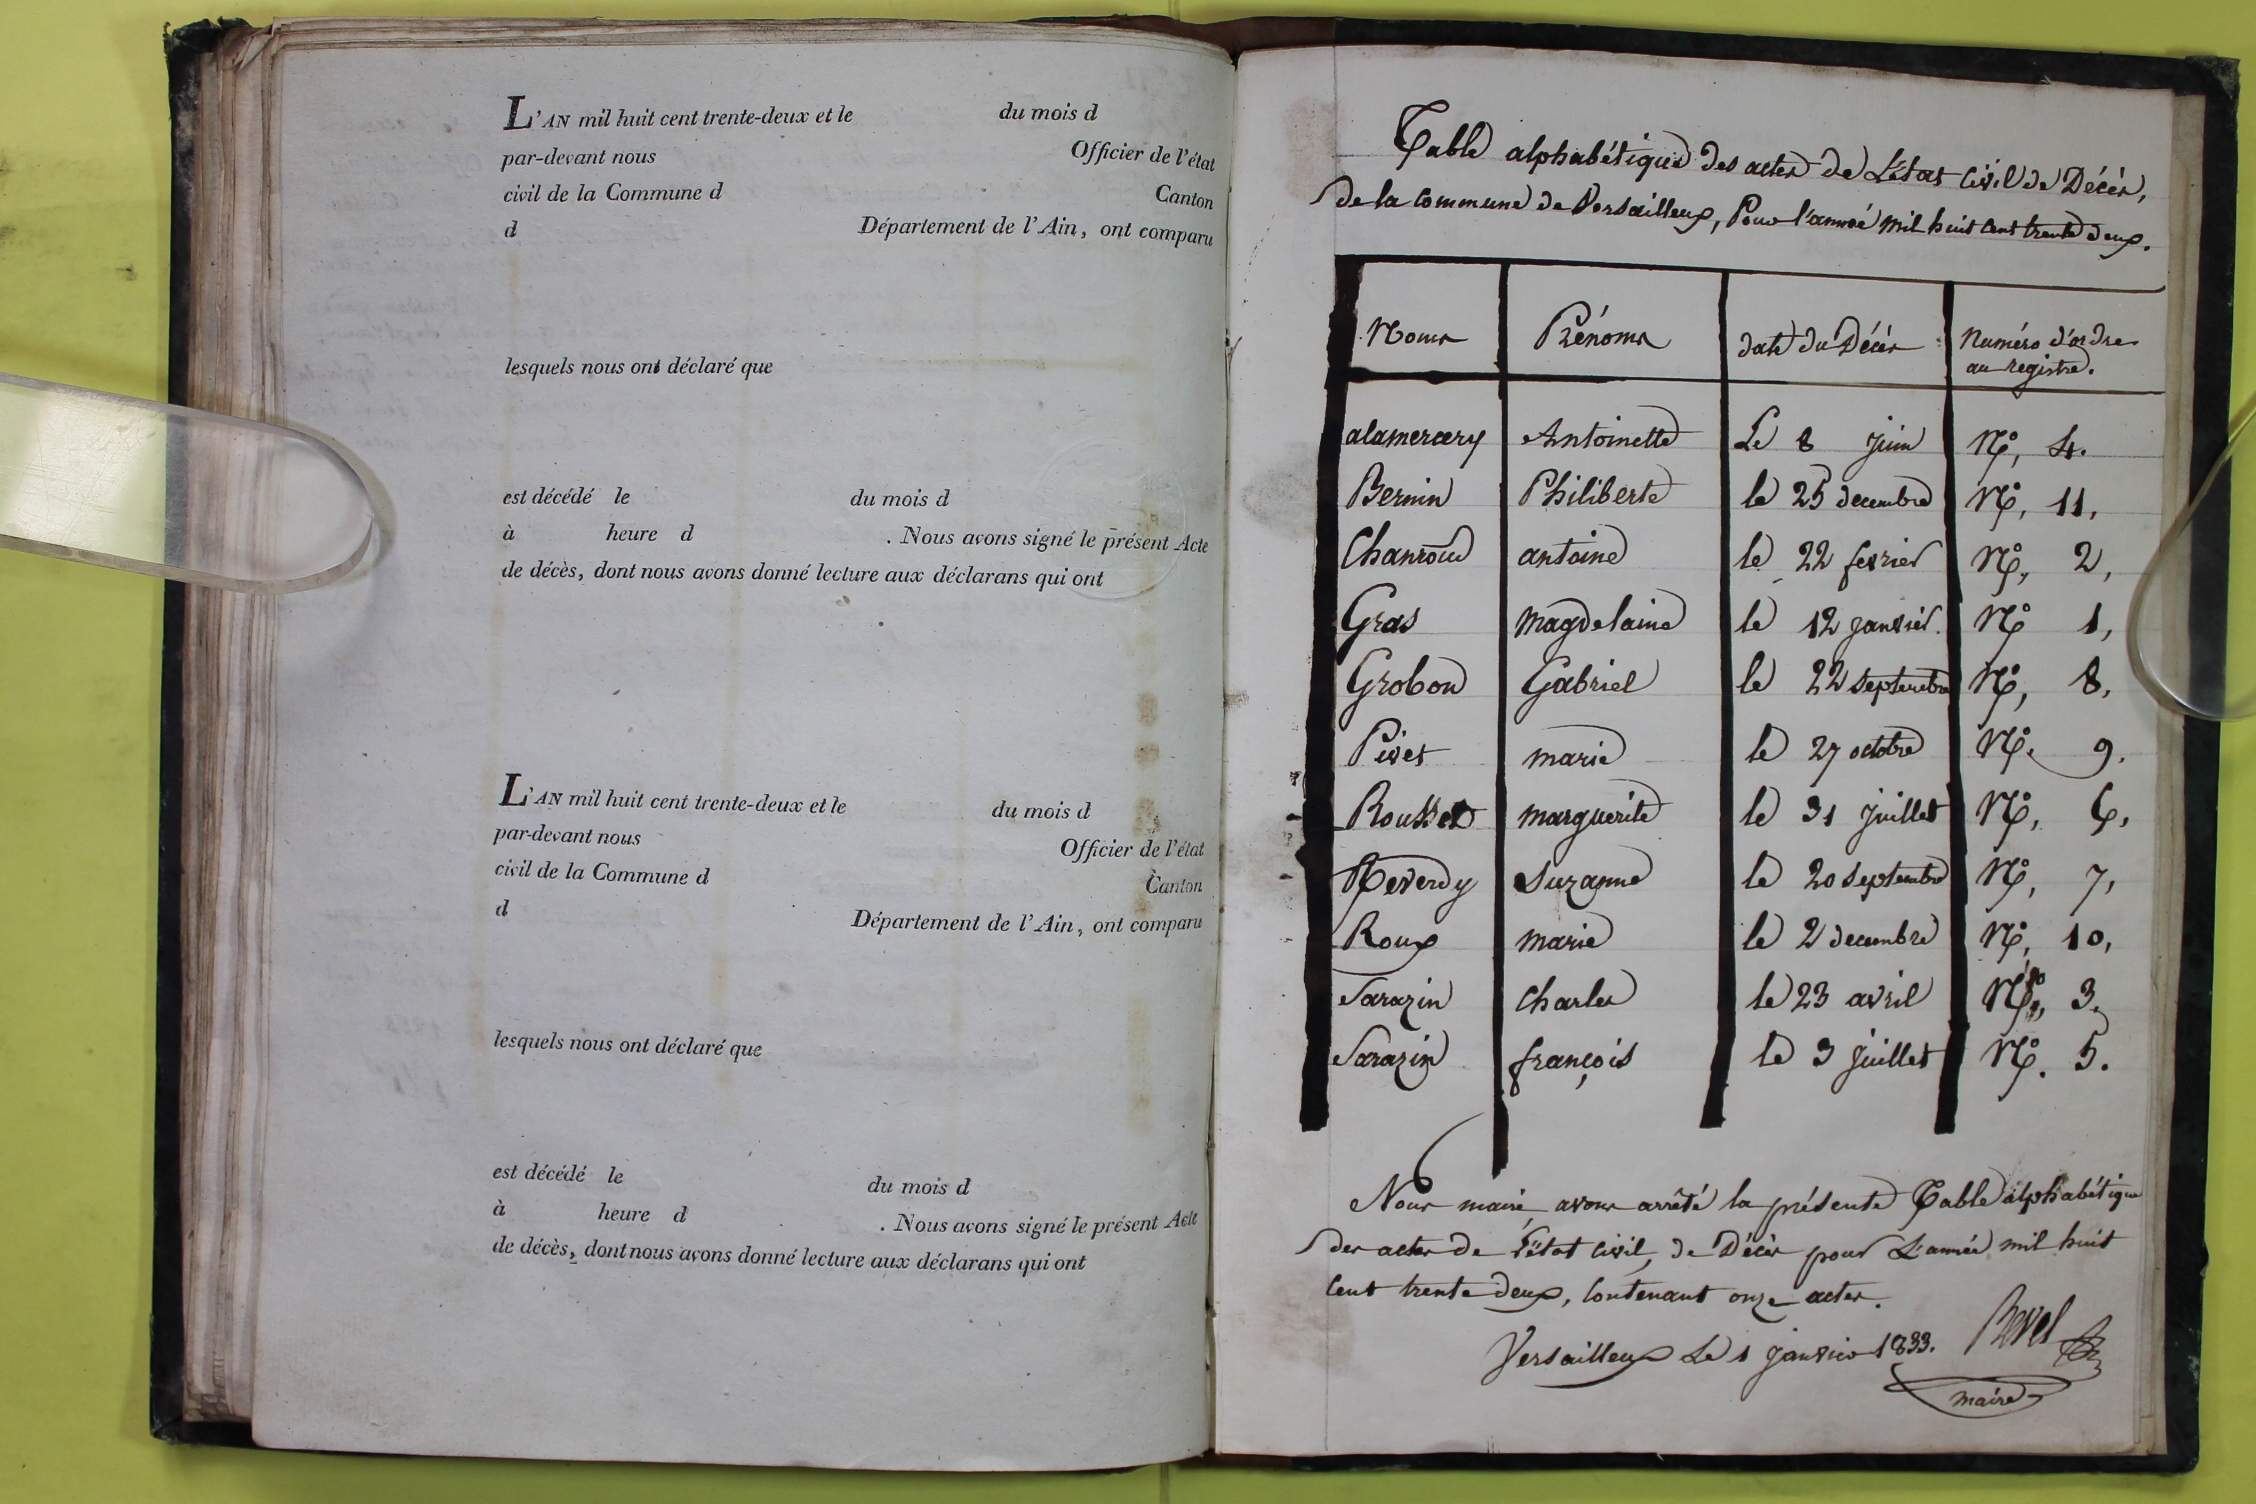 L'AN mil huit cent trente-deux et le du mois d
par-devant nous Officier de l'état
civil de la Commune d Canton
d Département de l'Ain, ont comparu
lesquels nous ont déclaré que
est décédé le du mois d
à heure d . Nous avons signé le présent Acte
de décès, dont nous avons donné lecture aux déclarans qui ont
L'AN mil huit cent trente-deux et le du mois d
par-devant nous Officier de l'état
civil de la Commune d Canton
d Département de l'Ain, ont comparu
lesquels nous ont déclaré que
est décédé le du mois d
à heure d . Nous avons signé le présent Acte
de décès, dont nous avons donné lecture aux déclarans qui ont
Table alphabétique des actes de L'état civil de Décès,
de la commune de Versailleux, Pour l'année mil huit cent trente deux.
Noms Prénoms date du Décès Numéro d'ordre
au registre.
alamercery Antoinette Le 8 juin N°, 4.
Bernin Philiberte le 25 decembre N°, 11,
Chanroud antoine le 22 fevrier N°, 2,
Gras magdelaine le 12 janvier. N° 1,
Grobon Gabriel le 22 septembre N°, 8,
Pivet marie le 27 octobre N°. 9.
Rousset marguerite le 31 juillet N°, 6,
Reverdy Suzanne le 20 septembre N°, 7,
Roux marie le 2 decembre N°, 10,
Sarazin charles le 23 avril N°, 3.
Sarazin françois le 3 juillet N°. 5.
Nous maire, avons arrêté la présente Table alphabétique
des actes de l'état civil, de Décès pour L'année mil huit
cent trente deux, contenant onze actes.
Versailleux Le 1 janvier 1833. Revel
maire